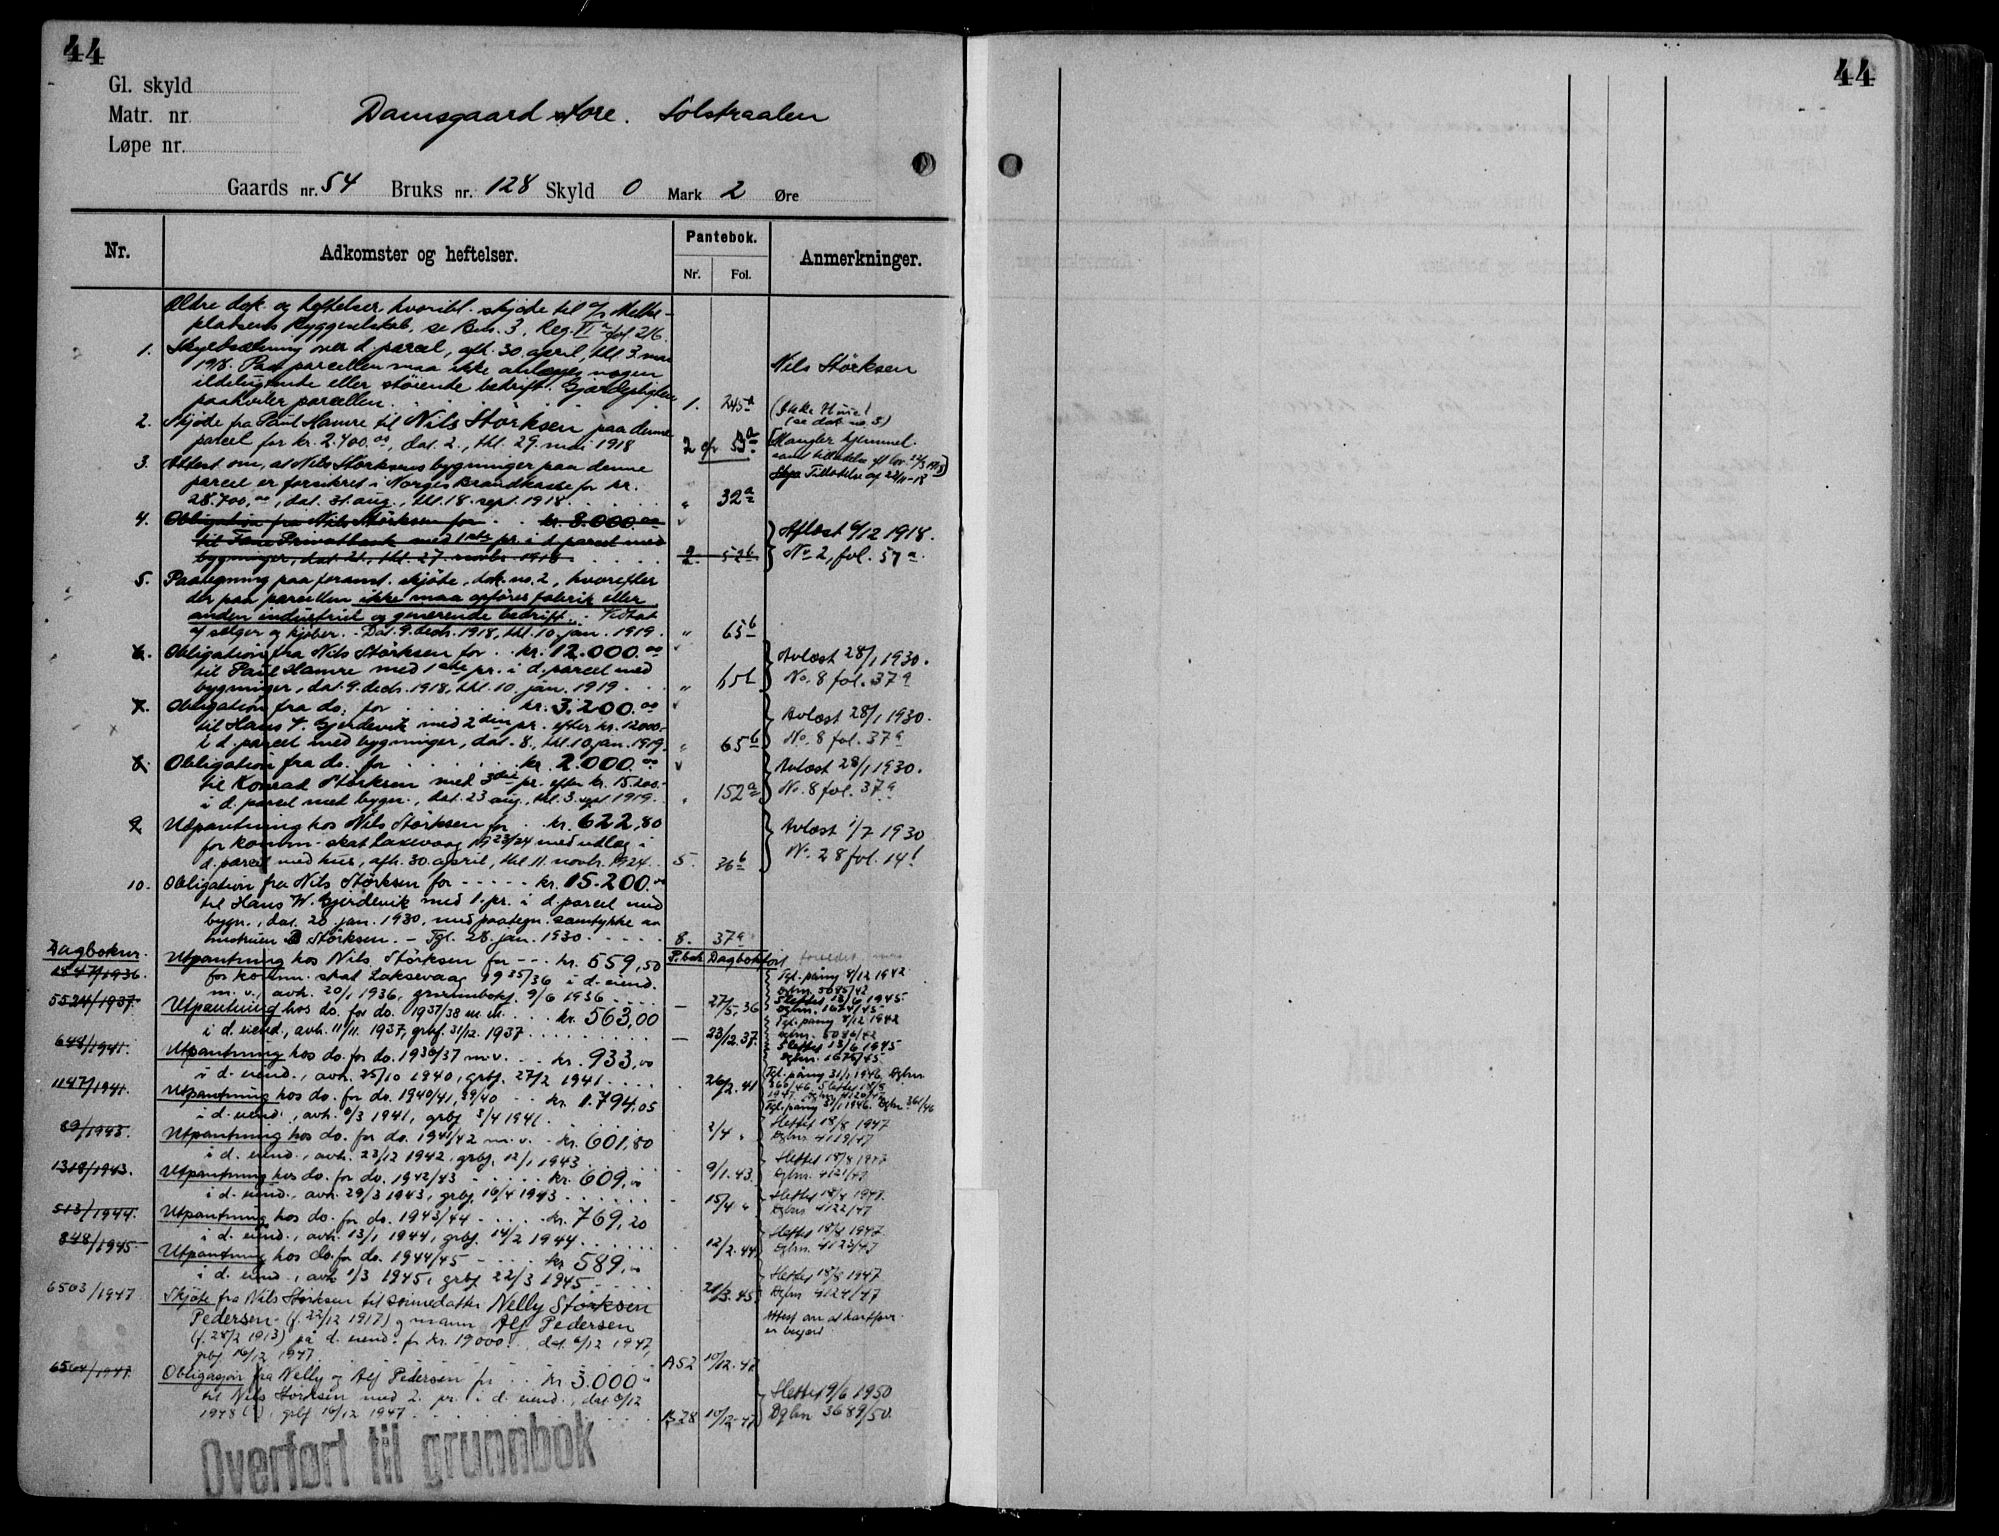 44
44
Gl. skyld
Matr. nr
Løpe nr.
Damsgaard store. Solstraalen
Gaards nr. 54 Bruks nr. 128 Skyld 0 Mark 2 Øre
Nr.
Adkomster og heftelser.
Pantebok.
Nr. Fol.
Anmerkninger.
Ældre dok. og heftelser, hvoribl. skjøde til
platsens Byggeselskab, se Beh. 3. Reg. VI a fol 216.
1. Skyldsætning over d. parcel, afh. 30. april, thl. 3. mai
1918. Paa parcellen maa ikke anlægges nogen
ildelugtende eller støiende bedrift. Gjærdepligten
paahviler parcellen. 1. 245a
Nils Störksen
(Ikke Huse!
(se dok. no. 3)
2. Skjøde fra Paul Hamre til Nils Störksen paa denne
parcel for kr. 2.400.00, dat. 2., thl. 29. mai 1918 2
Mangler hjemmel.
3. Attest om, at Nils Störksens bygninger paa denne
parcel er forsikret i Norges Brandkasse for kr.
28.700,00, dat. 31. aug., thl. 18. sept. 1918. " 32a
Tillatelse af 22/11-18
4. Obligation fra Nils Störksen for kr. 8.000.00
til Fana Privatbank med 1ste pr. i d. parcel med
bygninger, dat. 21., thl. 27. novbr. 1918 2. 52b
Aflæst 6/12 1918.
No 2, fol. 57a.
5. Paategning paa foramt. skjøde, dok. no. 2, hvorefter
der paa parcellen ikke maa opføres fabrik eller
anden industriel og generende bedrift. Vedtat
af sælger og kjøber. Dat. 9. decbr. 1918, thl. 10. jan. 1919. " 65b
6. Obligation fra Nils Störksen for kr. 12.000.00
til Paul Hamre med 1ste pr. i d. parcel med
bygninger, dat. 9. decbr. 1918, thl. 10. jan. 1919. " 65b
Avlæst 28/1 1930.
No. 8 fol. 37a
7. Obligation fra do. for kr. 3.200.00
til Hans V. Gjerdevik med 2den pr. efter kr. 12000.-
i d. parcel med bygninger, dat. 8., thl. 10. jan. 1919. " 65b
Avlæst 28/1 1930.
No. 8 fol. 37a
8. Obligation fra do. for kr. 2.000.00
til Konrad Störksen med 3die pr. efter kr. 15.200.-
i d. parcel med bygn., dat. 23 aug., thl. 3. sept. 1919. " 152a
Avlæst 28/1 1930.
No. 8 fol. 37a
9. Utpantning hos Nils Störksen for kr. 622,80
for komm. skat Laxevaag 1923/24 med utlæg i
d. parcel med hus, afh. 30. april, thl. 11. novbr. 1924. 5. 36b
Avlæst 1/7 1930
10. Obligation fra Nils Störksen for kr. 15.200.00
til Hans W. Gjerdevik med 1. pr. i d. parcel med
bygn., dat. 20. jan. 1930, med paategn. samtykke av
hustruen Störksen. - Tgl. 28. jan. 1930. 8. 37a
Dagboknr.
P.bok Dagbokført
Utpantning hos Nils Störksen for kr. 659,50
1936 for komm. skat Laksevaag 1935/36 i d. eiend.
m. v., avh. 20/1 1936, grunnbokf. 9/6 1936 — 27/5.36
Tgl. påny 4/12 1942
Dgbnr. 5045/42
Slettet 13/6 1945
Dgbnr. 1674/45
5524/1937. Utpantning hos do. for do. 1937/38 m.m. kr. 563,00
i d. eiend., avh. 11/11. 1937, grbf. 31/12. 1937 — 23/12.37.
Tgl. påny 4/12 1942
Dgbnr. 5046/42
Slettet 13/6 1945
Dgbnr. 1675/45
648/1941. Utpantning hos do. for do. 1936/37 m.v. kr. 933,00
i d. eiend., avh. 25/10 1940, grbf. 27/2 1941 26/2.41
Tgl. påny 31/1 1946. Dgbnr
366/46. Slettet 18/8
1147/1941. Utpantning hos do. for do. 1940/41, 39/40 kr. 1.794,05
i d. eiend., avh. 6/3 1941, grbf. 3/4 1941. 2/4 "
Tgl. påny 31/1 1946. Dgbnr 361/46
Slettet 18/8 1947
Dgbnr 4119/47
89/1943. Utpantning hos do. for do. 1941/42 m.v. kr. 601,80
i d. eiend., avh. 23/12 1942, grbf. 12/1 1943 9/1.43
Slettet 18/8 1947
Dgbnr. 4121/47
1318/1943. Utpantning hos do. for do. 1942/43 kr. 609,00
i d. eiend., avh. 29/3 1943, grbf. 16/4 1943 15/4 "
Slettet 18/8 1947.
Dgbnr. 4122/47
513/1944. Utpantning hos do. for do. 1943/44 kr. 769,20
i d. eiend., avh. 13/1 1944, grbf. 14/2 1944 12/2.44
Slettet 18/8 1947.
Dgbnr. 4123/47
848/1945 Utpantning hos do. for do. 1944/45 kr 589,00
i d. eiend., avh 1/3 1945, grbf 22/3 1945 21/3.45
Slettet 18/8 1947
Dgbnr 4124/47
6503/1947 Skjøte fra Nils Störksen til sønnedatter Nelly Störksen
Pedersen (f. 22/12 1917) og mann Alf Pedersen
(f. 28/2 1913) på d. eiend. for kr. 19000., dat. 6/12 1947,
grbf. 16/12 1947 A52 10/12-47
Attest om at
6504/1947 Obligasjon fra Nelly og Alf Pedersen for kr 3.000
til Nils Störksen med 2. pr. i d. eiend., dat 6/12
1948 (?), grbf 16/12 1947. B28 10/12-47
Slettet 9/6 1950
Dgbnr 3689/50.
Overført til grunnbok